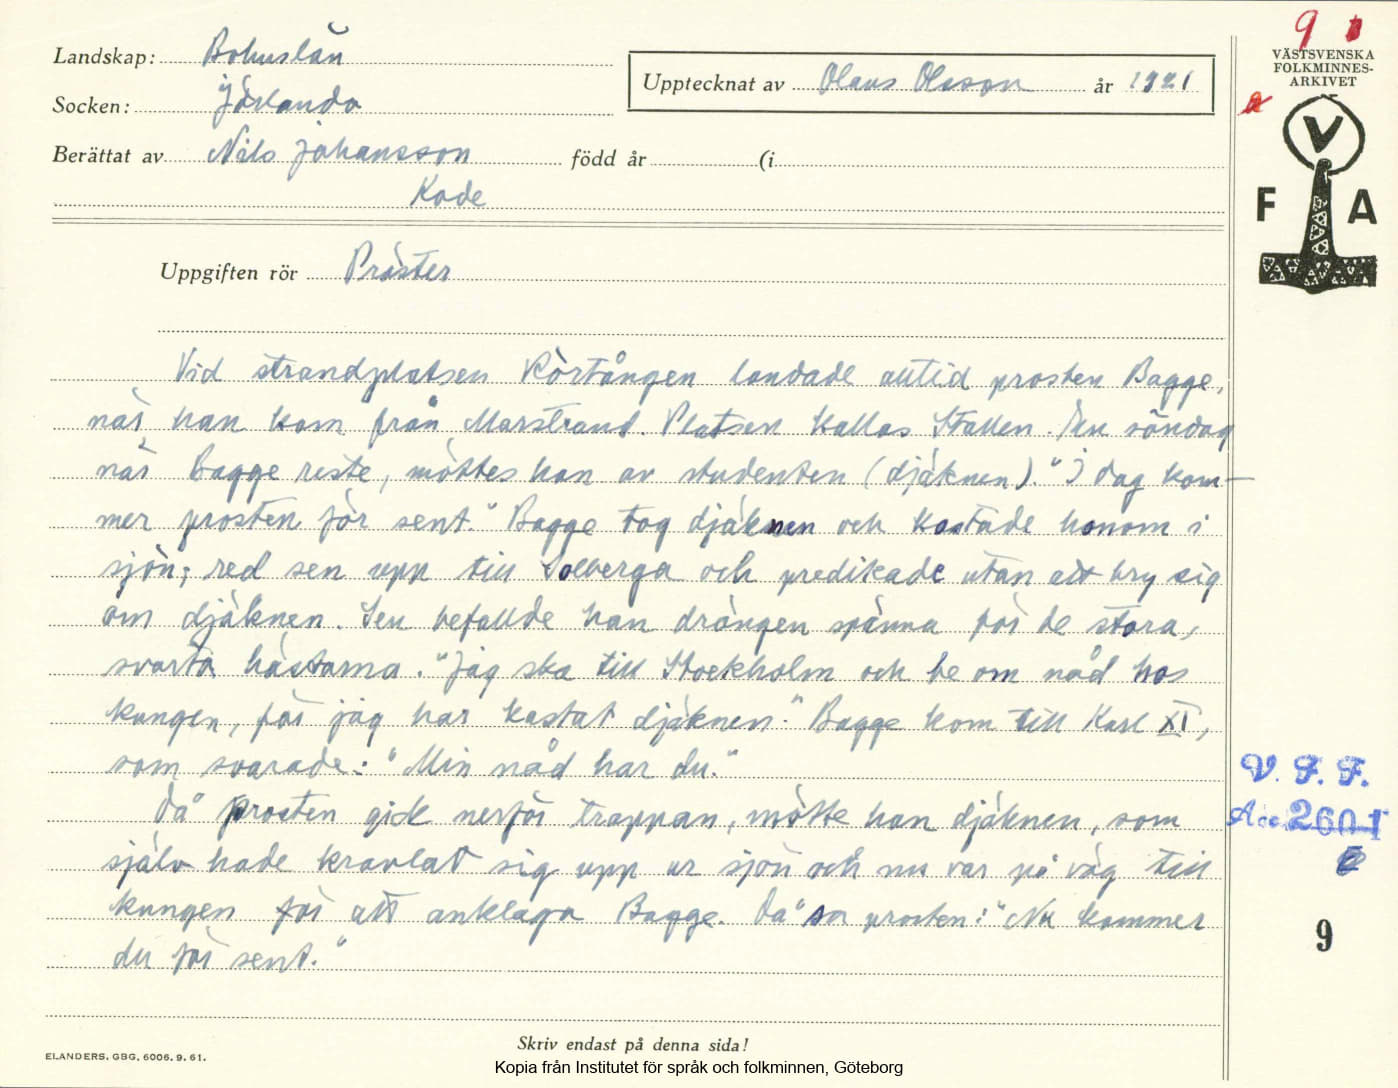 Landskap: Bohuslän
Socken: Jörlanda
Berättat av Nils Johansson född år (i
Kode
Upptecknat av Olaus Olsson år 1921
9
VÄSTSVENSKA
FOLKMINNES-
ARKIVET
V
F A
Uppgiften rör Präster
Vid strandplatsen Körtången landade alltid prosten Bagge,
när han kom från Marstrand. Platsen kallas Stallen. En söndag
när Bagge reste, möttes han av studenten (djäknen). "I dag kom-
mer prosten för sent." Bagge tog djäknen och kastade honom i
sjön; red sen upp till Solberga och predikade utan att bry sig
om djäknen. Sen befallde han drängen spänna för de stora,
svarta hästarna. "Jag ska till Stockholm och be om nåd hos
kungen, för jag har kastat djäknen." Bagge kom till Karl XI,
som svarade: "Min nåd har du."
Då prosten gick nerför trappan, mötte han djäknen, som
själv hade kravlat sig upp ur sjön och nu var på väg till
kungen för att anklaga Bagge. Då sa prosten: "Nu kommer
du för sent."
V. F. F.
Acc. 2601
9
Skriv endast på denna sida!
ELANDERS, GBG. 6006. 9. 61.
Kopia från Institutet för språk och folkminnen, Göteborg